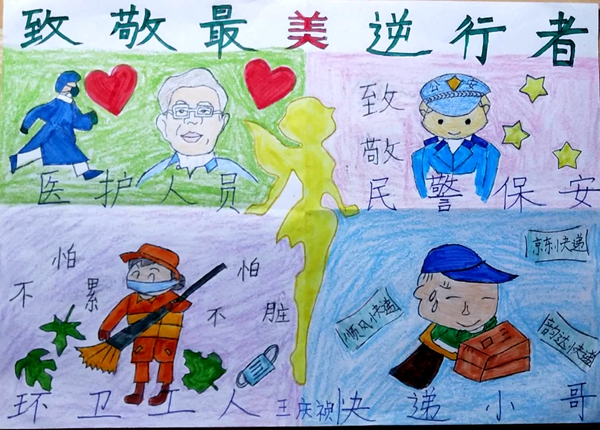 致敬最美逆行者
医护人员
公安
致敬
民警保安
怕
不累
怕
不脏
环卫工人
王庆祯
京东快递
顺风快递
韵达快递
快递小哥